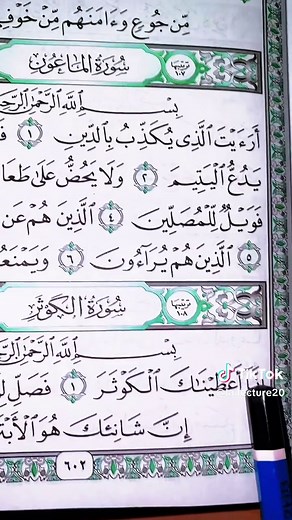 مِّن جُوعٍ وَءَامَنَهُم مِّنْ خَوْفٍ
سُورَةُ المَاعُونِ
تَرتيبُهَا ١٠٧
بِسْمِ ٱللَّهِ ٱلرَّحْمَٰنِ
أَرَءَيْتَ ٱلَّذِى يُكَذِّبُ بِٱلدِّينِ ١
يَدُعُّ ٱلْيَتِيمَ ٢ وَلَا يَحُضُّ عَلَىٰ طَعَا
فَوَيْلٌ لِّلْمُصَلِّينَ ٤ ٱلَّذِينَ هُمْ عَن
٥ ٱلَّذِينَ هُمْ يُرَآءُونَ ٦ وَيَمْنَعُ
سُورَةُ الكَوْثَرِ
تَرتيبُهَا ١٠٨
بِسْمِ ٱللَّهِ ٱلرَّحْمَٰنِ
إِنَّآ أَعْطَيْنَٰكَ ٱلْكَوْثَرَ ١ فَصَلِّ
إِنَّ شَانِئَكَ هُوَ ٱلْأَبْتَ
٦٠٢
TikTok